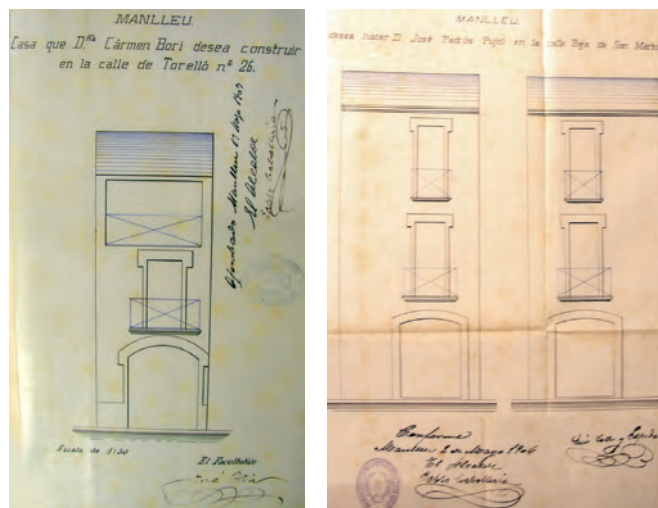 MANLLEU.
Casa que D.ña Cármen Bori desea construir
en la calle de Torelló nº 26.
Manlleu 17 Mayo 1904
El Alcalde
Escala de 1:50
El Facultativo
MANLLEU.
desea hacer D. José Padrós Pujol en la calle Baja de San Martí
Conforme
Manlleu 2 de Mayo 1904
El Alcalde